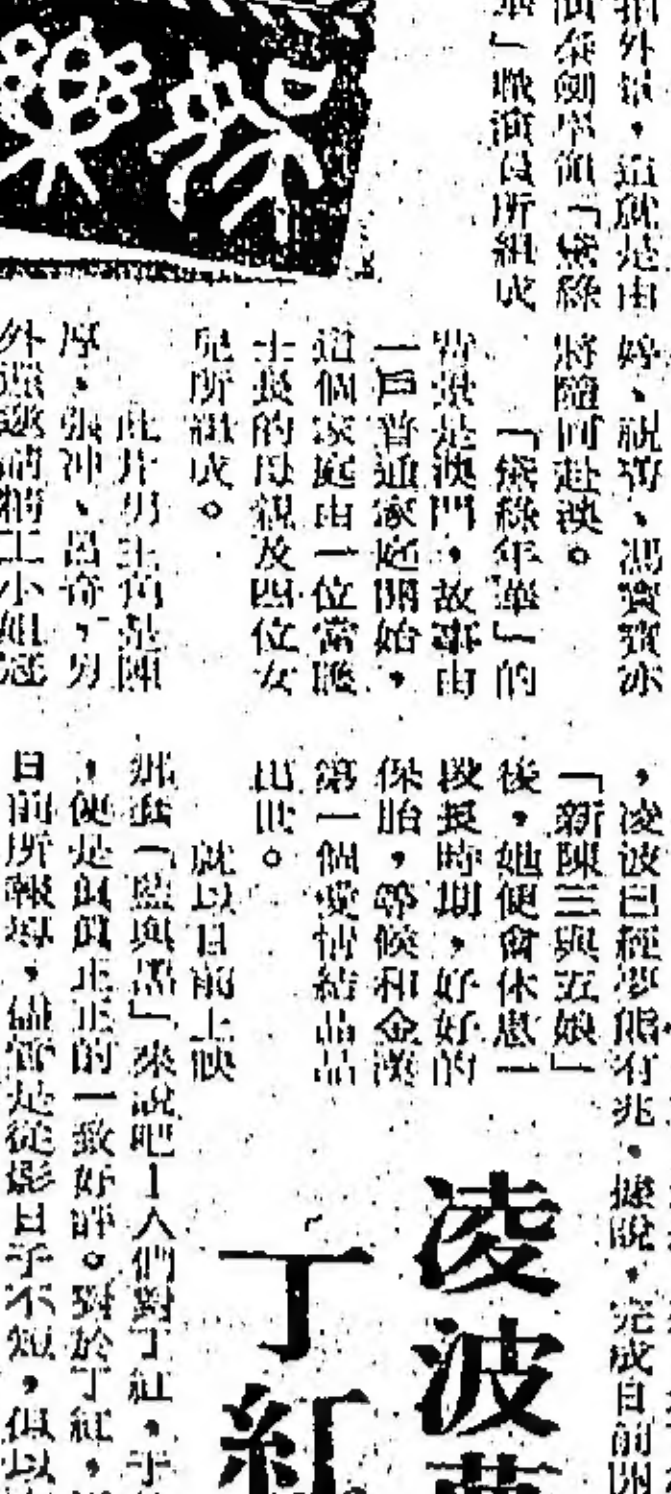 外景,這就是由
演秦劍率領「黛綠
華」職演員所組成
婷、祝菁、馮寶寶亦
將隨同赴澳。
「黛綠年華」的
背景是澳門,故事由
一戶普通家庭開始,
這個家庭由一位當護
士長的母親及四位女
兒所組成。
此片男主角是陳
厚,張冲、呂奇,另
外還邀請精工小姐
,凌波已經夢熊有兆,據說,完成目前開
「新陳三與五娘」
後,她便會休息一
段長時期,好好的
保胎,等候和金漢
第一個愛情結晶品
出世。
凌波
丁紅
就以目前上映
「藍與黑」來說吧!人們對丁紅,
,便是真真正正的一致好評。對於丁紅,
日前所報導,儘管是從影日子不短,但以